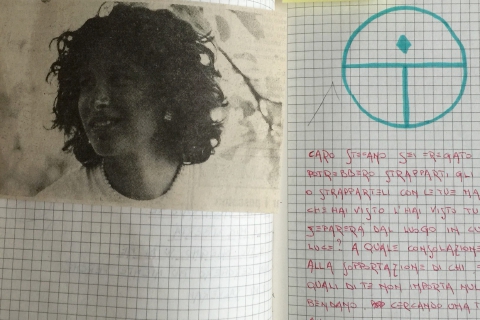 CARO STEFANO SEI FREGATO
POTREBBERO STRAPPARTI GLI
O STRAPPARTELI CON LE TUE MA
CHE HAI VISTO L'HAI VISTO TU
SEPARERÀ DAL LUOGO IN CU
LUCE? A QUALE CONSOLAZIONE
ALLA SOPPORTAZIONE DI CHI E
QUALI DI TE NON IMPORTA NUL
BENDANO. CERCANDO UNA F